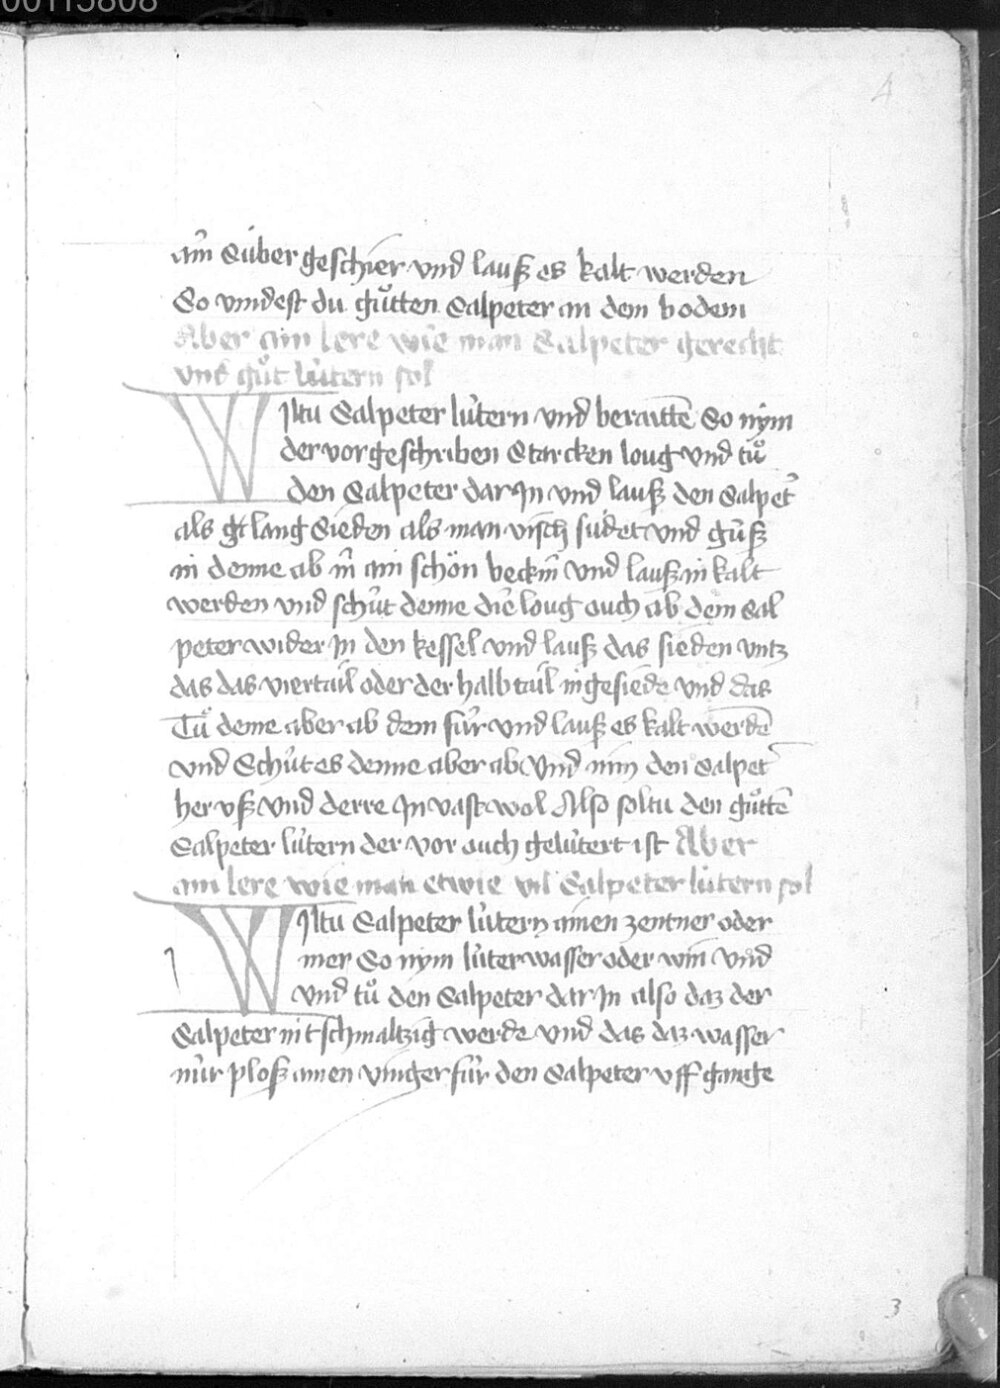 00115808
4
ain Suber geschier vnd lauß es kalt werden
So vindest du gůtten Salpeter an dem bodem
Aber ain lere wie man Salpeter gerecht
vnd gůt lütern sol
WIltu Salpeter lütern vnd beraittē So nym
der vorgeschriben Starcken loug vnd tů
den Salpeter dar In vnd lauß den Salpet̛
als lang Sieden als man visch südet vnd güß
in denne ab in ain schön beckin vnd lauß in kalt
werden vnd schüt denne die loug ouch ab dem Sal
peter wider In den kessel vnd lauß das sieden vntz
das das viertail oder der halb tail ingesiede vnd das
Tů denne aber ab dem für vnd lauß es kalt werdē
vnd Schüt es denne aber ab vnd nim den Salpet̛
her vß vnd derre In vast wol Also soltu den gůttē
Salpeter lütern der vor ouch gelütert ist Aber
ain lere wie man etwie vil Salpeter lütern sol
WIltu Salpeter lütern ainen zentner oder
mer So nym lüter wasser oder win vnd
vnd tů den Salpeter dar In also daz der
Salpeter nit schmaltzig werde vnd das daz wasser
nür ploß ainen vinger für den Salpeter vff gange
3